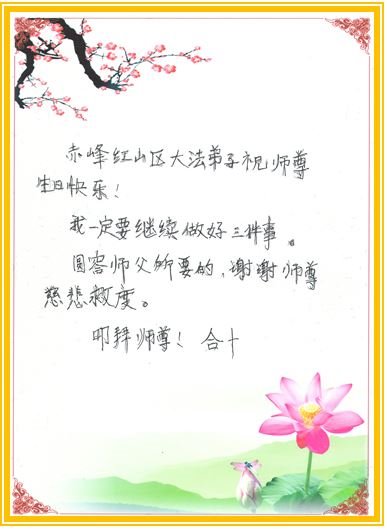 赤峰红山区大法弟子祝师尊
生日快乐！
我一定要继续做好三件事。
圆容师父所要的，谢谢师尊
慈悲救度。
叩拜师尊！合十